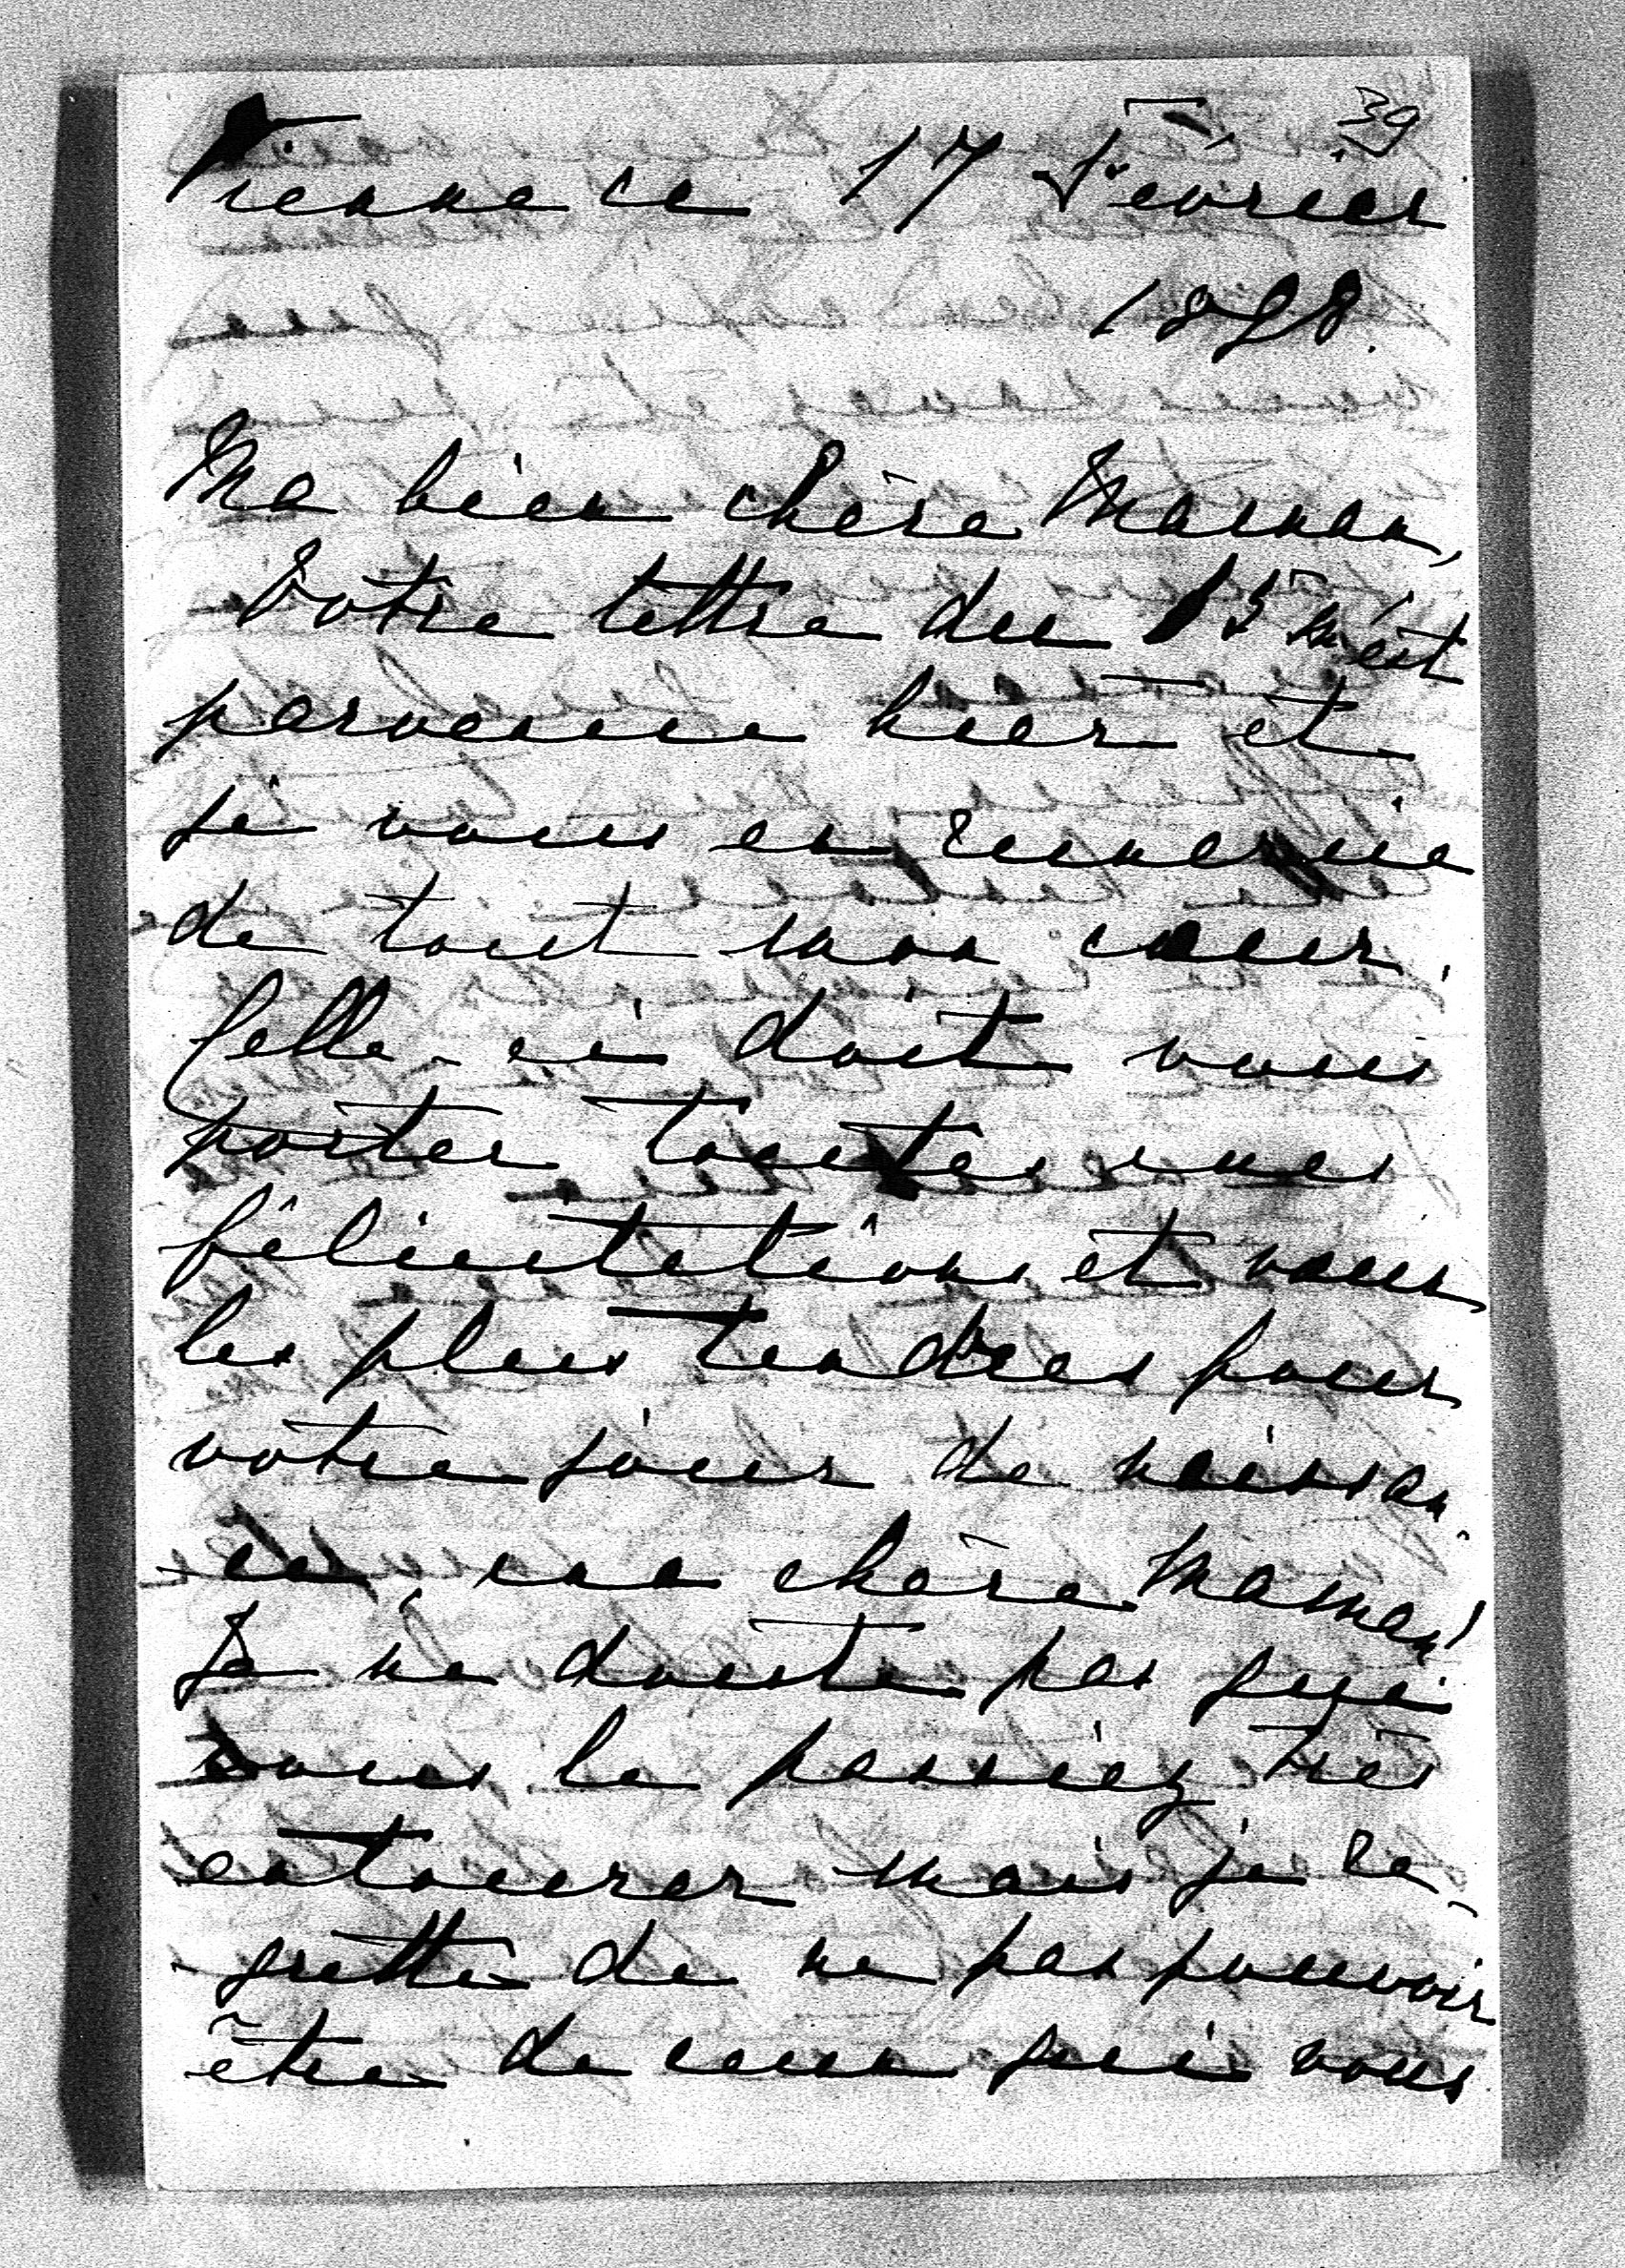 39
Vienne ce 17 Février
1898.
Ma bien chère Maman,
Votre lettre du 15 m'est
parvenue hier et
je vous en remercie
de tout mon cœur.
Celle-ci doit vous
porter toutes mes
félicitations et vœux
les plus tendres pour
votre jour de naissan-
-ce, ma chère Maman!
Je ne doute pas que
vous le passiez très
entourée mais je re-
-grette de ne pas pouvoir
être de ceux qui vous